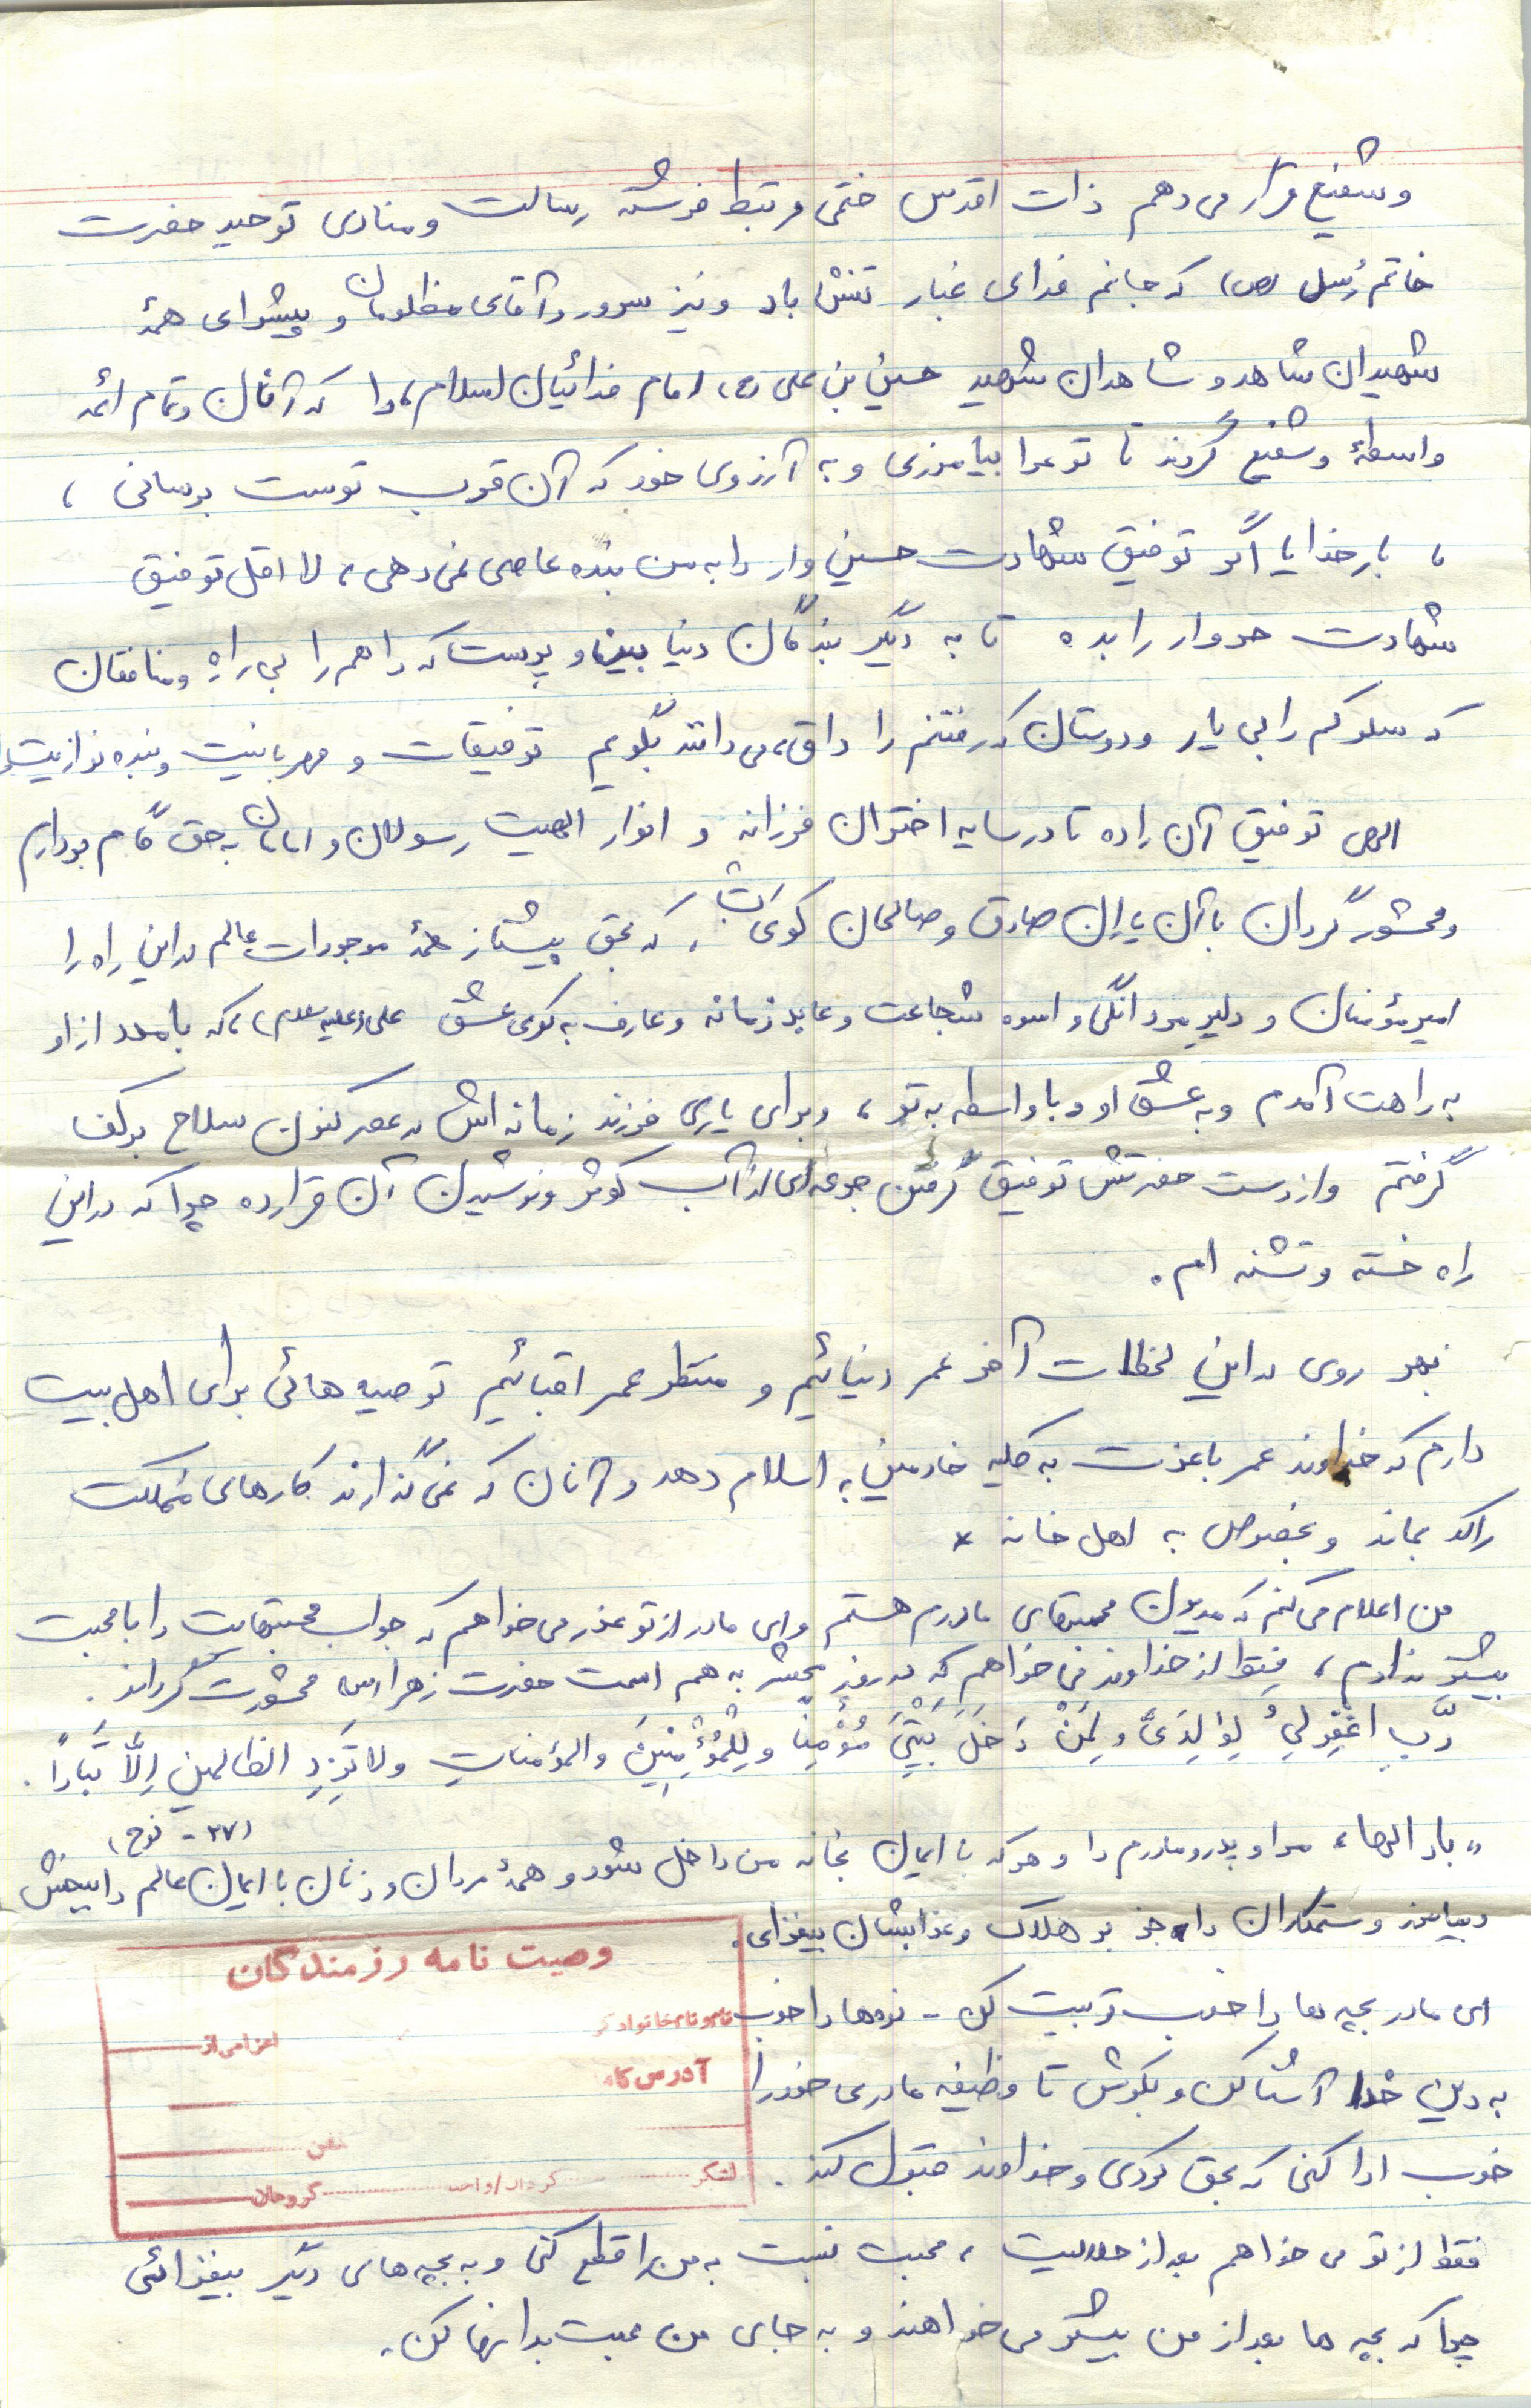 و شفیع قرار می دهم ذات اقدس ختمی مرتبط فرشته رسالت و منادی توحید حضرت
خاتم رُسل (ص) که جانم فدای غبار تنش باد و نیز سرور و آقای مظلومان و پیشوای همهٔ
شهیدان شاهد و شاهدان شهید حسین بن علی (ع)، امام فدائیان اسلام، را که آنان و تمام ائمه
واسطهٔ و شفیع گردند تا تو مرا بیامرزی و به آرزوی خود که آن قرب توست برسانی ،
، بار خدایا اگر توفیق شهادت حسین وار را به من بنده عاصی نمی دهی، لا اقل توفیق
شهادت حر وار را بده تا به دیگر بندگان دنیا بین و پرست که راهم را بی راه و منافقان
که سلوکم را بی یار و دوستان که رفتنم را می دانند بگویم توفیقات و مهربانیت و بنده نوازیت
الهی توفیق آن را ده تا در سایه اختران فرزانه و انوار الهیت رسولان و امامان به حق گام بردارم
و محشور گردان با آن یاران صادق و صالحان کوی ات ، که بحق پیشتاز همهٔ موجودات عالم در این راه را
امیر مؤمنان و دلیر مردانگی و اسوه شجاعت و عابد زمانه و عارف به کوی عشق علی (علیه سلام)، که با مدد از او
به راهت آمدم و به عشق او و با واسطه به تو ، و برای یاری فرزند زمانه اش در عصر کنون سلاح بر کف
گرفتم و از دست حضرتش توفیق گرفتن جرعه ای از آب کوثر و نوشیدن آن قرار ده چرا که در این
راه خسته و تشنه ام .
بهر روی در این لحظات آخر عمر دنیائیم و منتظر عمر اقبائیم توصیه هائی برای اهل بیت
دارم که خداوند عمر با عزت به کلیه خادمین به اسلام دهد و آنان که نمی گذارند کارهای مملکت
راکد بماند و بخصوص به اهل خانه *
من اعلام می کنم که مدیون محبتهای مادرم هستم و ای مادر از تو عذر می خواهم که جواب محبتهایت را با محبت
بیشتر ندادم ، فقط از خداوند می خواهم که در روز محشر به هم اسمت حضرت زهرا (س) محشورت گرداند .
رَّبِ اغْفِرلِیُ لِوٰلِدَیَّ وَ لِمَنْ دَخَلَ بَیْتِیَ مُؤْمِنًا وَ لِلْمُؤْمِنِینَ وَ المؤمناتِ و لا تَزِدِ الظالمین اِلَّا تَبَاراً .
(۲۷ - نوح)
« بار الها ، مرا و پدر و مادرم را و هر که با ایمان بخانه من داخل شود و همهٔ مردان و زنان با ایمان عالم را ببخش
و بیامرز و ستمکاران را جز بر هلاک و عذابشان بیفزای .
وصیت نامه رزمندگان
نام و نام خانوادگی
اعزامی از
آدرس کامل
تلفن
لشگر گردان/واحد گروهان
ای مادر بچه ها را خوب تربیت کن - نوه ها را خوب
به دین خدا آشنا کن و بکوش تا وظیفه مادری خود را
خوب ادا کنی که بحق کردی و خداوند قبول کند .
فقط از تو می خواهم بعد از حلالیت ، محبت نسبت به من را قطع کنی و به بچه های دیگر بیفزائی
چرا که بچه ها بعد از من بیشتر می خواهند و به جای من محبت بدانها کن .